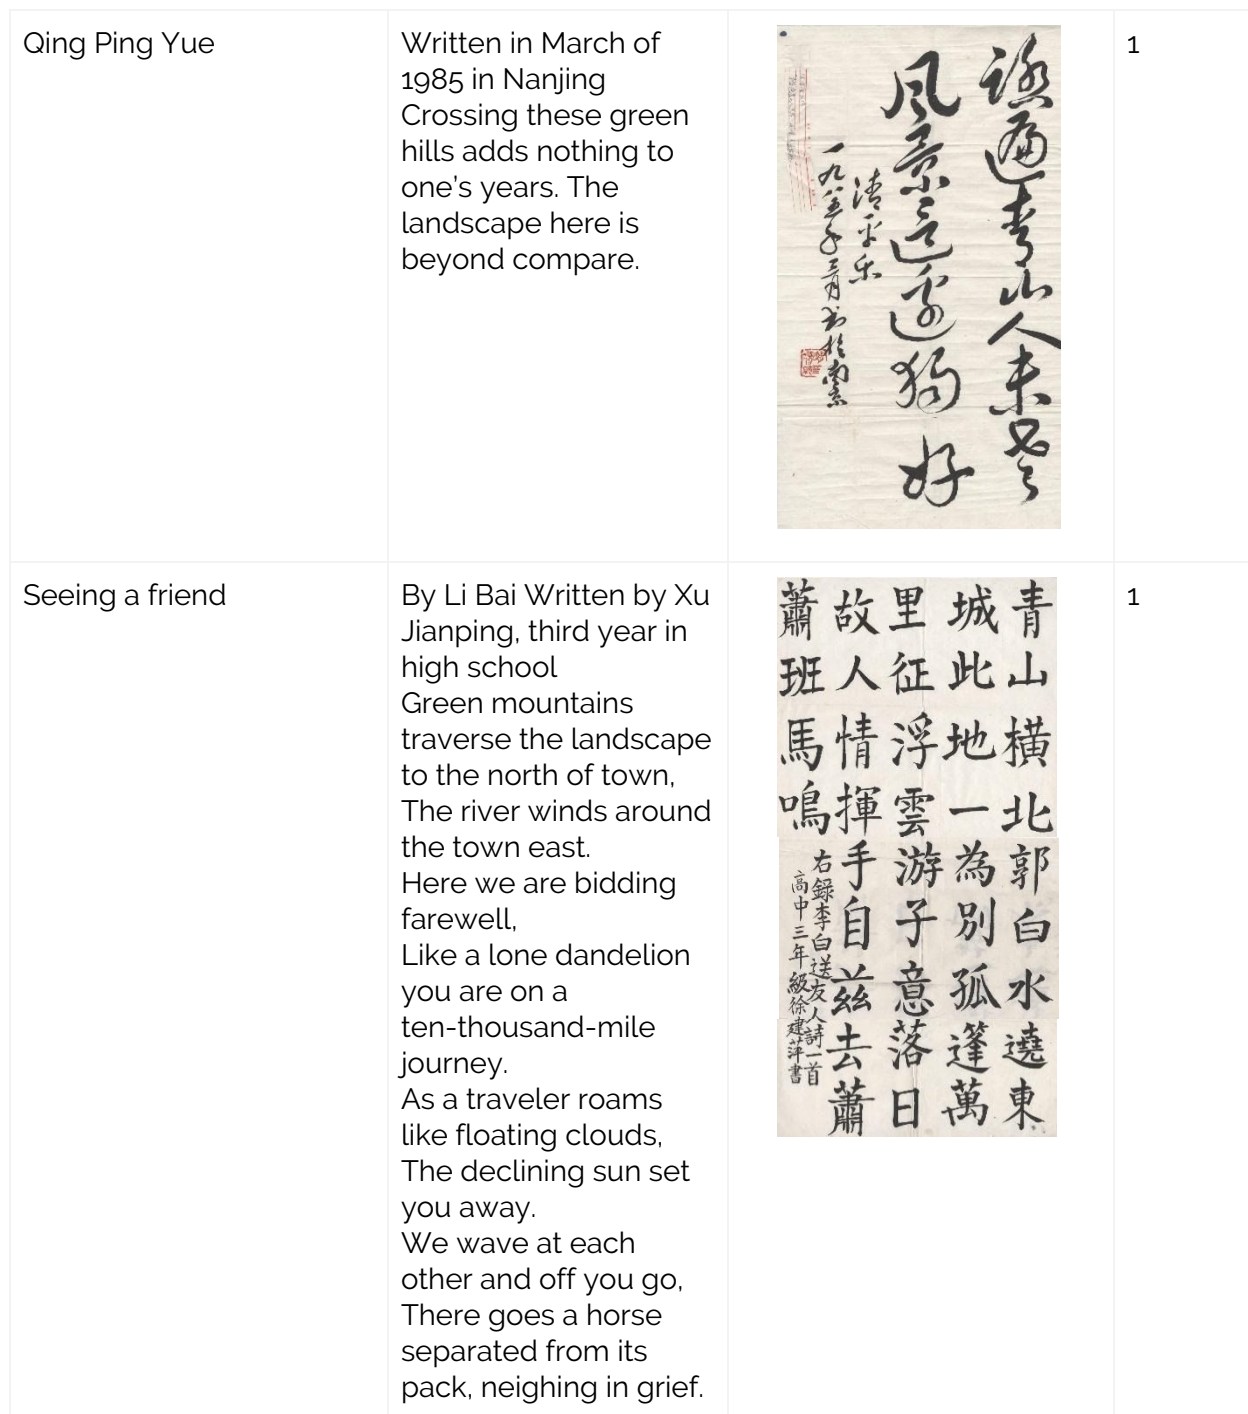 Qing Ping Yue
Written in March of
1985 in Nanjing
Crossing these green
hills adds nothing to
one's years. The
landscape here is
beyond compare.
踏遍青山人未老
风景这边独好
清平乐
一九八五年三月书于南京
1
Seeing a friend
By Li Bai Written by Xu
Jianping, third year in
high school
Green mountains
traverse the landscape
to the north of town,
The river winds around
the town east.
Here we are bidding
farewell,
Like a lone dandelion
you are on a
ten-thousand-mile
journey.
As a traveler roams
like floating clouds,
The declining sun set
you away.
We wave at each
other and off you go,
There goes a horse
separated from its
pack, neighing in grief.
青山橫北郭白水遶東
城此地一為別孤蓬萬
里征浮雲游子意落日
故人情揮手自茲去蕭
蕭班馬鳴
右錄李白送友人詩一首
高中三年級徐建萍書
1